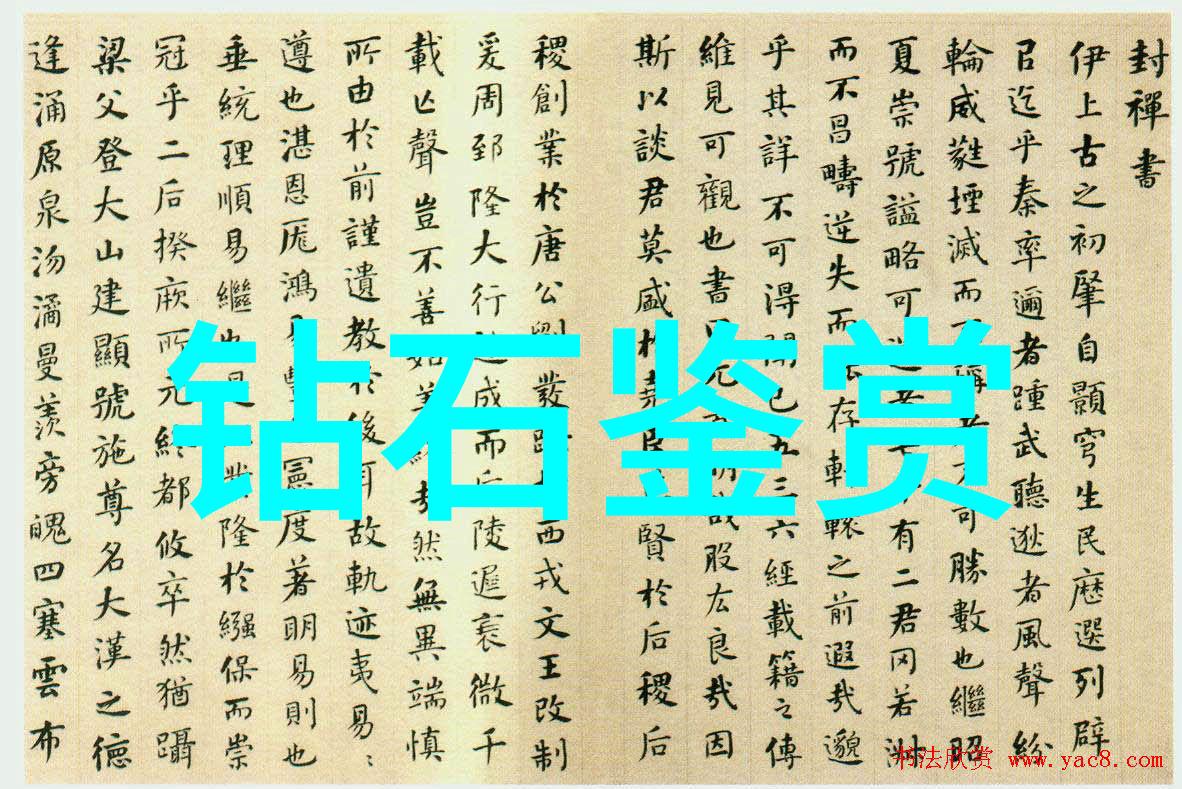 封禪書
伊上古之初肇自顥穹生民歷選列辟
以迄乎秦率邇者踵武聽逖者風聲紛
輪威蕤堙滅而不稱者不可勝數也繼昭
夏崇號謚略可道者七十有二君罔若淋
而不昌疇逆失而能存軒轅之前遐哉邈
乎其詳不可得聞已五三六經載籍之傳
維見可觀也書曰元首明哉股厷良哉因
斯以談君莫盛於堯臣莫賢於后稷后
稷創業於唐公劉發跡於西戎文王改制
爰周郅隆大行越成而后陵遲衰微千
載亡聲豈不善始善終哉然無異端慎
所由於前謹遺教於後耳故軌迹夷易〻
遵也湛恩厖鴻易豐也憲度著明易則也
垂統理順易繼也是以業隆於繈保而崇
冠乎二后揆厥所元終都攸卒然猶躡
梁父登大山建顯號施尊名大漢之德
逢涌原泉沕潏曼羨旁魄四塞雲布
钻石鉴赏
书法欣赏 www.yac8.com